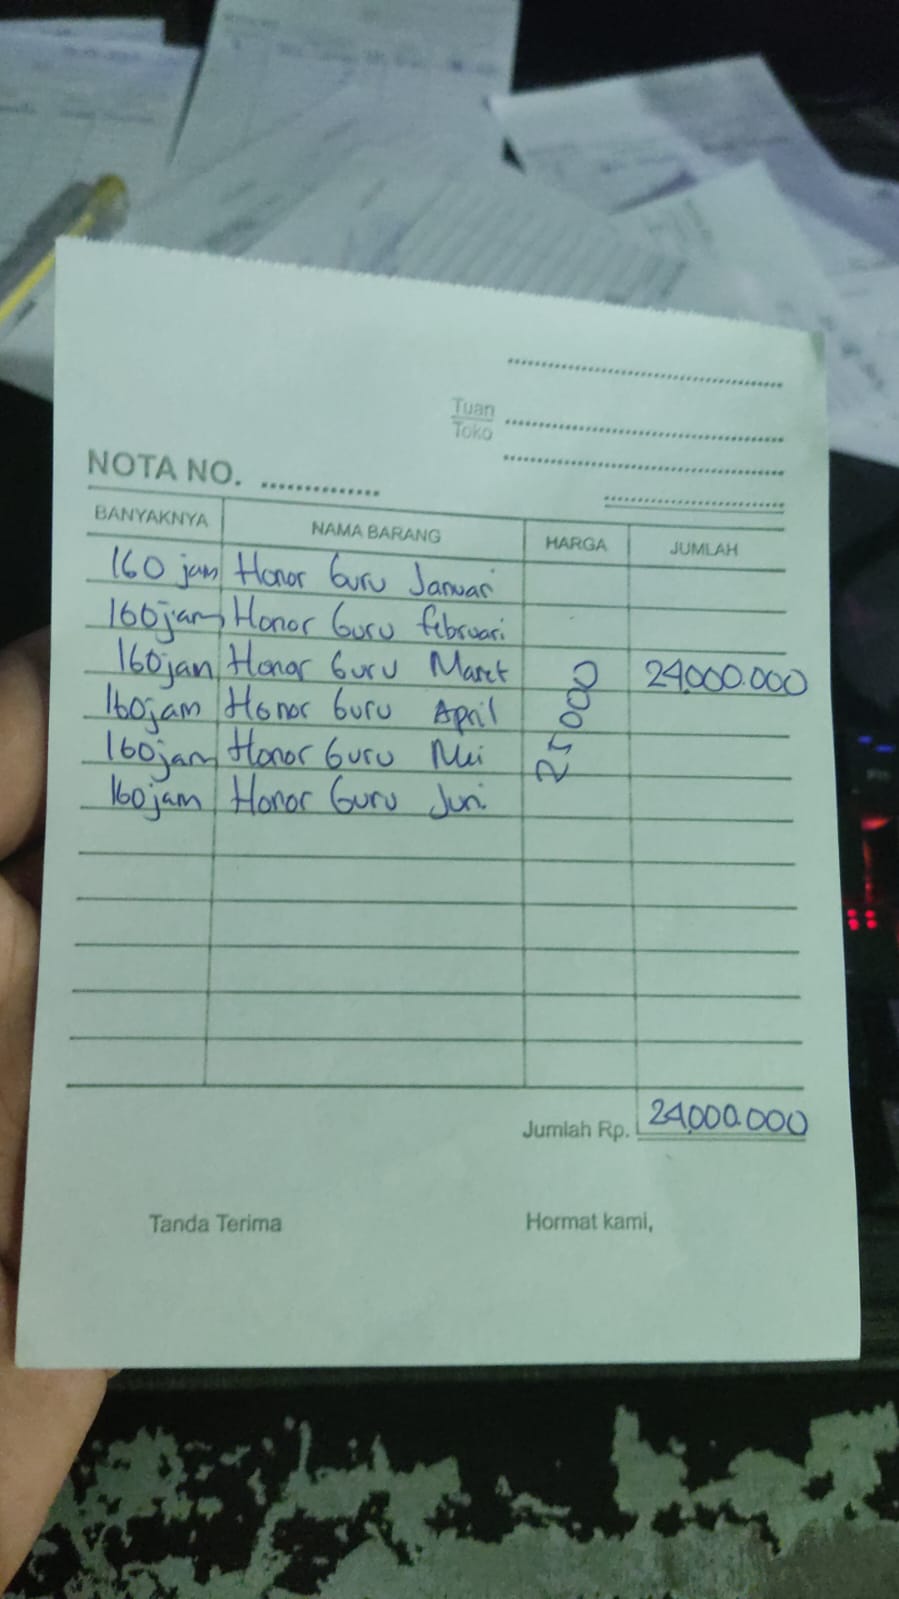 Tuan
Toko
NOTA NO.
BANYAKNYA NAMA BARANG HARGA JUMLAH
160 jam Honor Guru Januari
160 jam Honor Guru februari
160 jan Honor Guru Maret 24.000.000
160 jam Honor Guru April
160 jam Honor Guru Mei
160 jam Honor Guru Juni
25000
Jumlah Rp. 24.000.000
Tanda Terima Hormat kami,